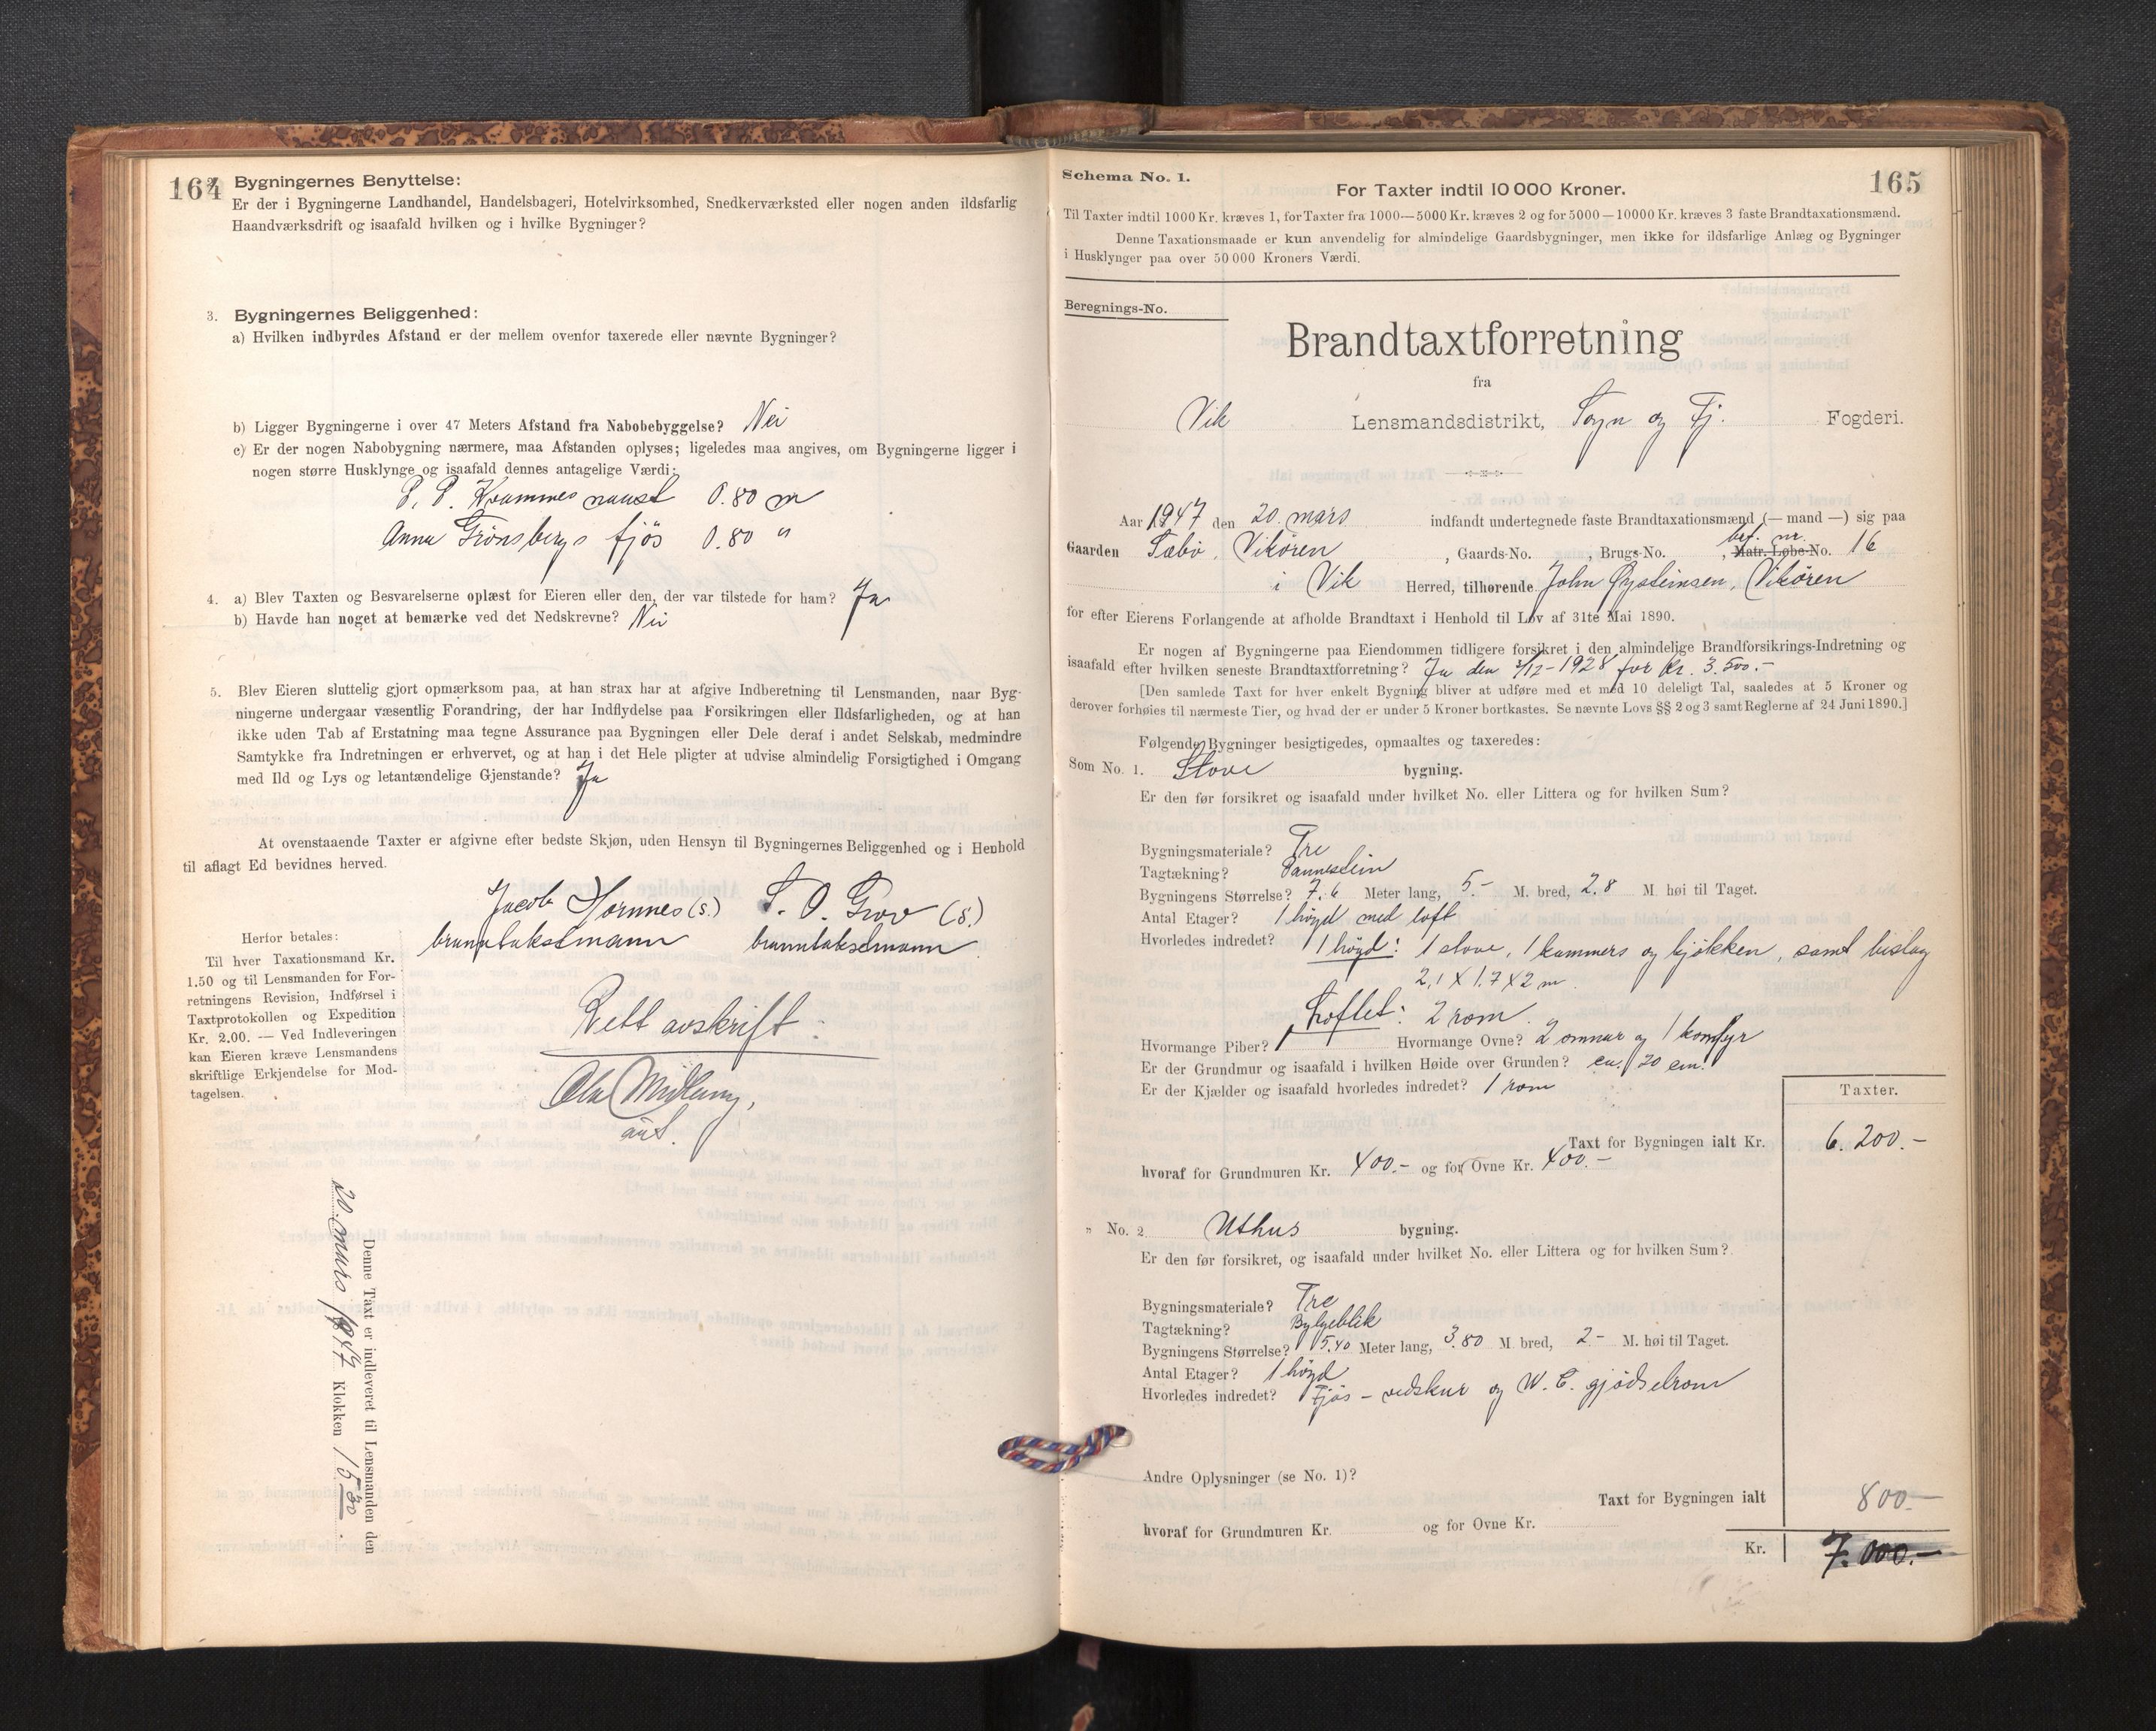 164
2. Bygningernes Benyttelse:
Er der i Bygningerne Landhandel, Handelsbageri, Hotelvirksomhed, Snedkerværksted eller nogen anden ildsfarlig
Haandværksdrift og isaafald hvilken og i hvilke Bygninger?
3. Bygningernes Beliggenhed:
a) Hvilken indbyrdes Afstand er der mellem ovenfor taxerede eller nævnte Bygninger?
b) Ligger Bygningerne i over 47 Meters Afstand fra Nabobebyggelse? Nei
c) Er der nogen Nabobygning nærmere, maa Afstanden oplyses; ligeledes maa angives, om Bygningerne ligger i
nogen større Husklynge og isaafald dennes antagelige Værdi:
P. P. Hrammes naust 0.80 m
Anna Grønsbergs fjøs 0.80 "
4. a) Blev Taxten og Besvarelserne oplæst for Eieren eller den, der var tilstede for ham? Ja
b) Havde han noget at bemærke ved det Nedskrevne? Nei
5. Blev Eieren sluttelig gjort opmærksom paa, at han strax har at afgive Indberetning til Lensmanden, naar Byg-
ningerne undergaar væsentlig Forandring, der har Indflydelse paa Forsikringen eller Ildsfarligheden, og at han
ikke uden Tab af Erstatning maa tegne Assurance paa Bygningen eller Dele deraf i andet Selskab, medmindre
Samtykke fra Indretningen er erhvervet, og at han i det Hele pligter at udvise almindelig Forsigtighed i Omgang
med Ild og Lys og letantændelige Gjenstande? Ja
At ovenstaaende Taxter er afgivne efter bedste Skjøn, uden Hensyn til Bygningernes Beliggenhed og i Henhold
til aflagt Ed bevidnes herved.
Jacob Hornnes (s.) S. O. Grov (s.)
branntakstmann branntakstmann
Herfor betales:
Til hver Taxationsmand Kr.
1.50 og til Lensmanden for For-
retningens Revision, Indførsel i
Taxtprotokollen og Expedition
Kr. 2.00. — Ved Indleveringen
kan Eieren kræve Lensmandens
skriftlige Erkjendelse for Mod-
tagelsen.
Rett avskrift:
Ola Midlang,
ass.
Denne Taxt er indleveret til Lensmanden den
20. mars 1947 Klokken 15 30.
165
Schema No. 1.
For Taxter indtil 10 000 Kroner.
Til Taxter indtil 1000 Kr. kræves 1, for Taxter fra 1000—5000 Kr. kræves 2 og for 5000—10000 Kr. kræves 3 faste Brandtaxationsmænd.
Denne Taxationsmaade er kun anvendelig for almindelige Gaardsbygninger, men ikke for ildsfarlige Anlæg og Bygninger
i Husklynger paa over 50 000 Kroners Værdi.
Beregnings-No.
Brandtaxtforretning
fra
Vik Lensmandsdistrikt, Sogn og Fj. Fogderi.
Aar 1947 den 20. mars indfandt undertegnede faste Brandtaxationsmænd (— mand —) sig paa
Gaarden Sæbø, Vikøren, Gaards-No. , Brugs-No. , Matr. Løbe-No. bef. nr. 16
i Vik Herred, tilhørende John Øysteinsen, Vikøren
for efter Eierens Forlangende at afholde Brandtaxt i Henhold til Lov af 31te Mai 1890.
Er nogen af Bygningerne paa Eiendommen tidligere forsikret i den almindelige Brandforsikrings-Indretning og
isaafald efter hvilken seneste Brandtaxtforretning? Ja den 3/12-1928 for kr. 3.500.-
[Den samlede Taxt for hver enkelt Bygning bliver at udføre med et med 10 deleligt Tal, saaledes at 5 Kroner og
derover forhøies til nærmeste Tier, og hvad der er under 5 Kroner bortkastes. Se nævnte Lovs §§ 2 og 3 samt Reglerne af 24 Juni 1890.]
Følgende Bygninger besigtigedes, opmaaltes og taxeredes:
Som No. 1. Stove bygning.
Er den før forsikret og isaafald under hvilket No. eller Littera og for hvilken Sum?
Bygningsmateriale? Tre
Tagtækning? Pannestein
Bygningens Størrelse? 7.6 Meter lang, 5.- M. bred, 2.8 M. høi til Taget.
Antal Etager? 1 høgd med loft
Hvorledes indredet? 1 høgd: 1 stove, 1 kammers og kjøkken, samt bislag
2,1 X 1,7 X 2 m.
Loftet: 2 rom.
Hvormange Piber? 1 Hvormange Ovne? 2 omnar og 1 komfyr
Er der Grundmur og isaafald i hvilken Høide over Grunden? ca. 70 cm.
Er der Kjælder og isaafald hvorledes indredet? 1 rom
Taxter.
Taxt for Bygningen ialt Kr. 6.200.-
hvoraf for Grundmuren Kr. 400.- og for Ovne Kr. 400.-
" No. 2 Uthus bygning.
Er den før forsikret, og isaafald under hvilket No. eller Littera og for hvilken Sum?
Bygningsmateriale? Tre
Tagtækning? Bylgeblik
Bygningens Størrelse? 5.40 Meter lang, 3.80 M. bred, 2- M. høi til Taget.
Antal Etager? 1 høgd
Hvorledes indredet? Fjøs - vedskur og W. C. gjødselrom
Andre Oplysninger (se No. 1)?
Taxt for Bygningen ialt 800.-
hvoraf for Grundmuren Kr. og for Ovne Kr.
Kr. 7.000.-